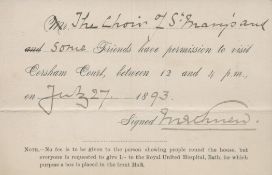 Mr. The Choir of St Mary's and
and some Friends have permission to visit
Corsham Court, between 12 and 4 p.m.,
on July 27 1893.
Signed
NOTE.—No fee is to be given to the person showing people round the house, but
everyone is requested to give 1/- to the Royal United Hospital, Bath, for which
purpose a box is placed in the front Hall.